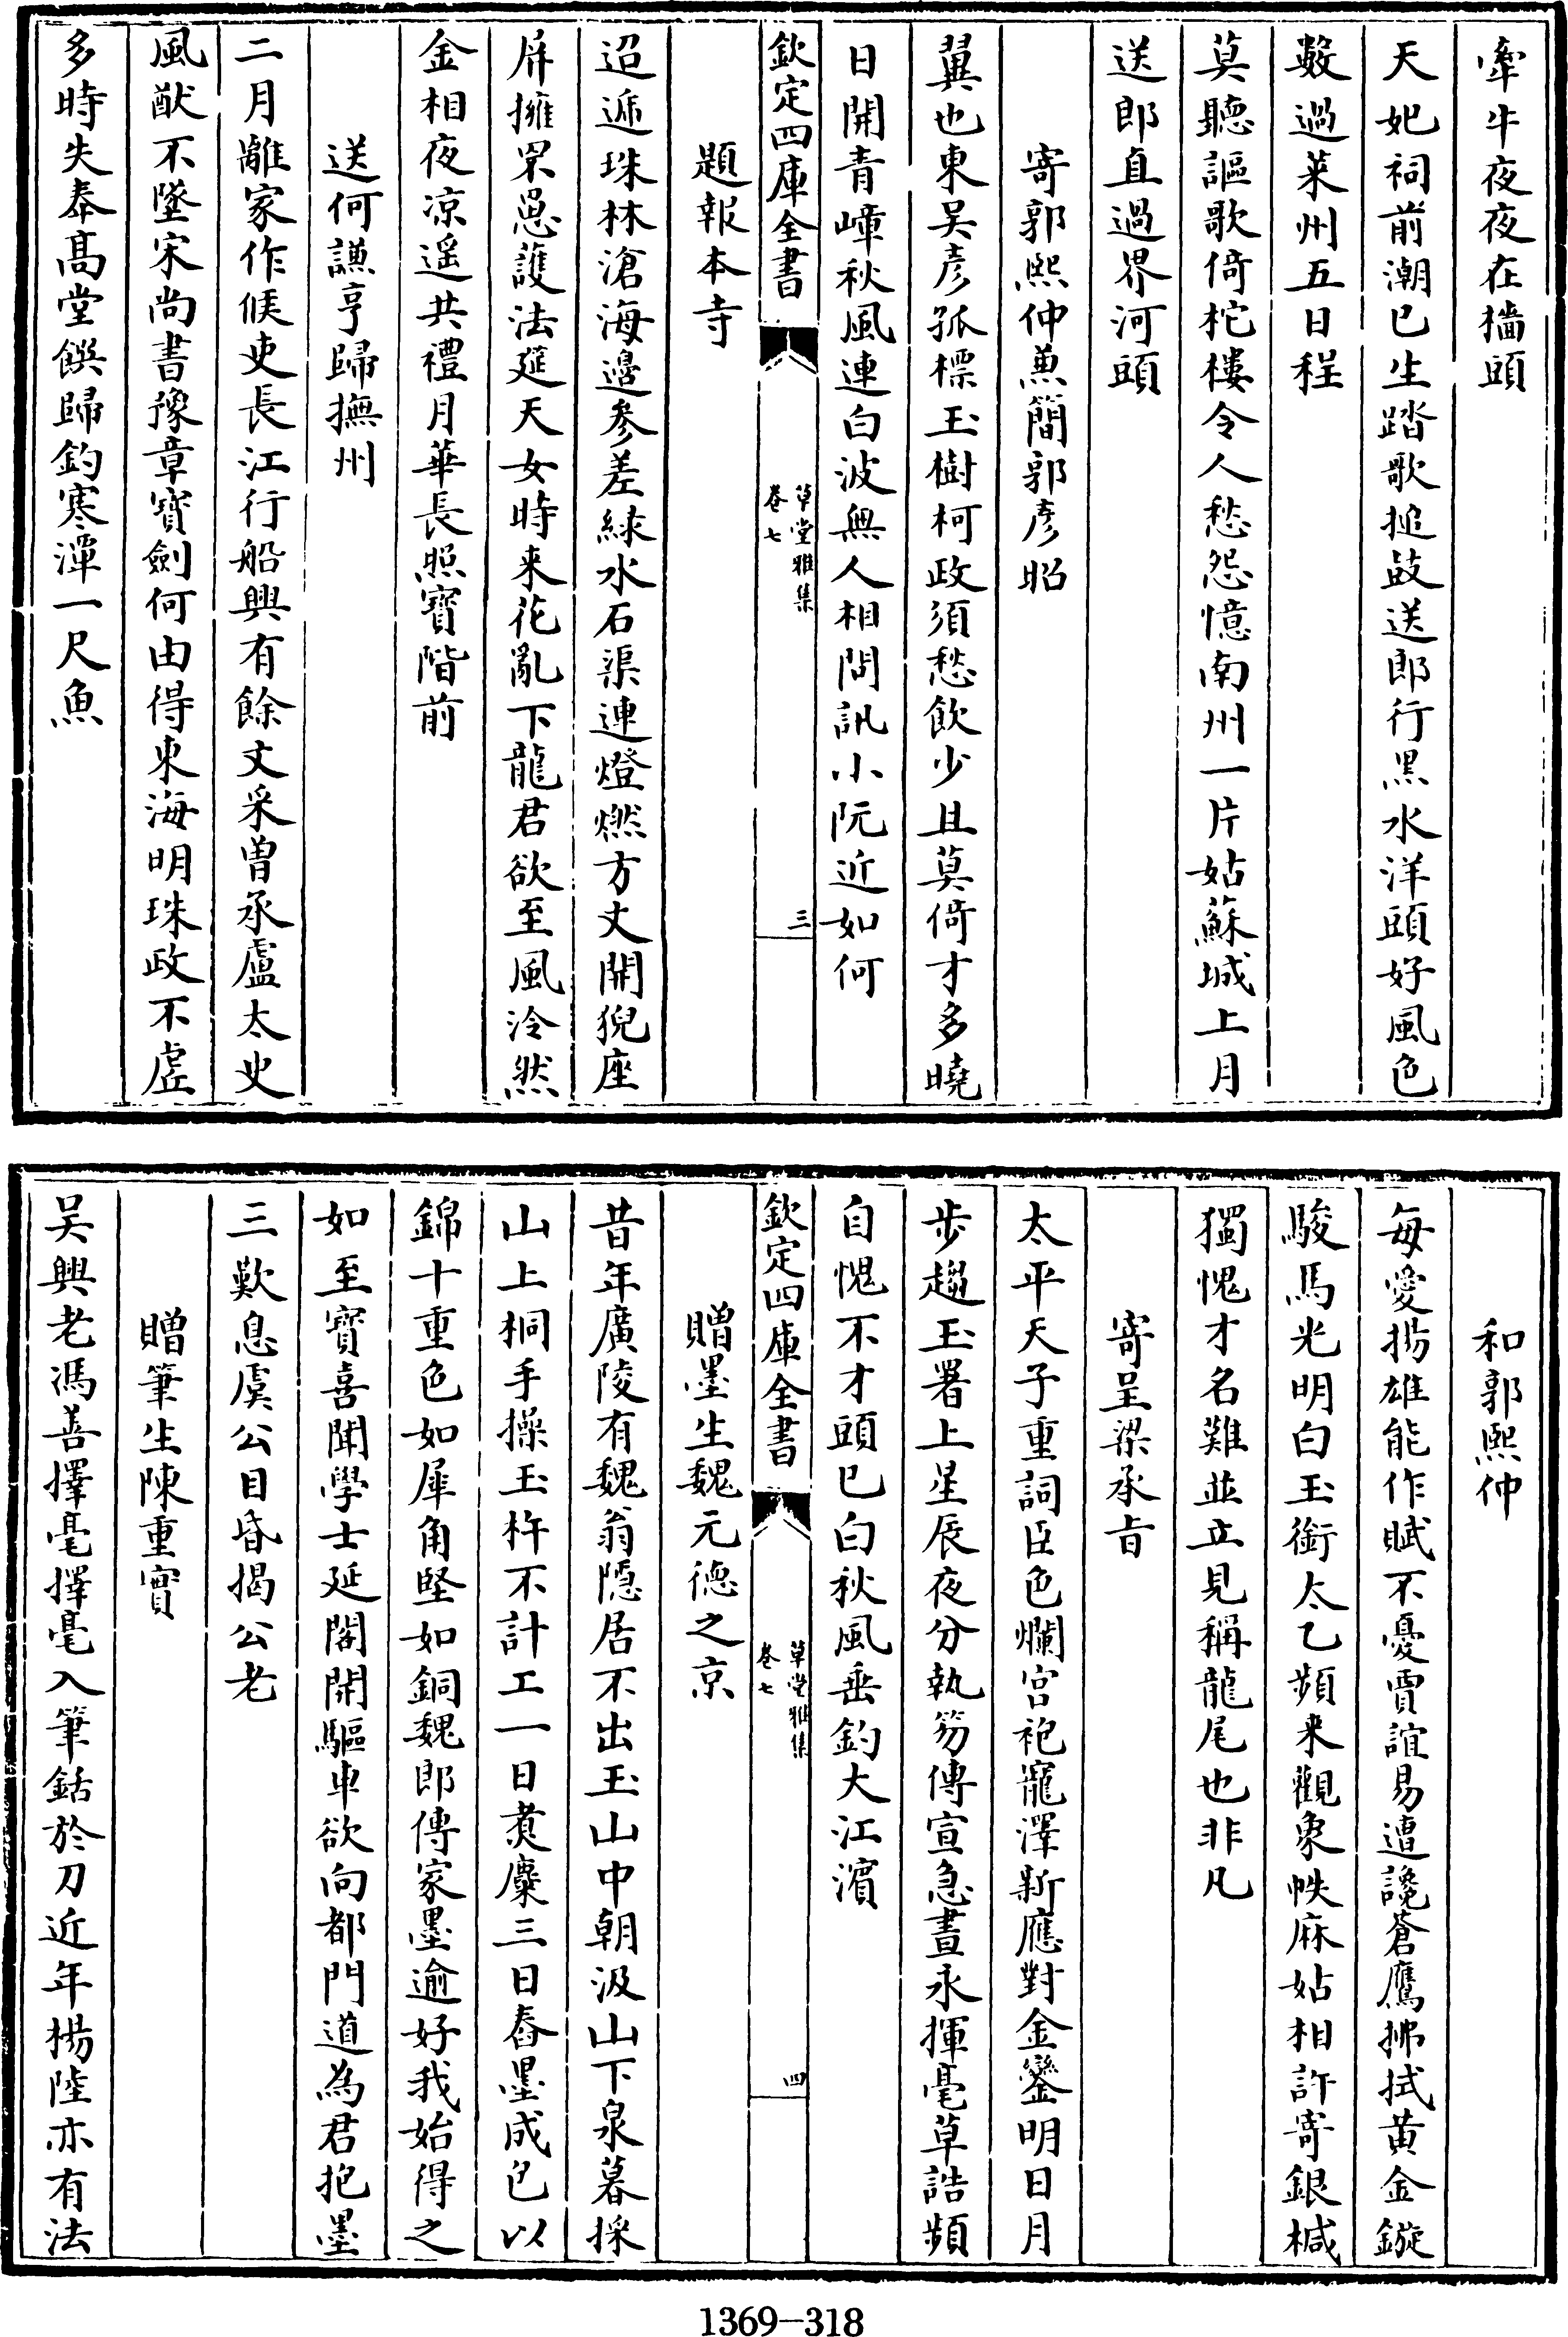 牽牛夜夜在檣頭
天妃祠前潮已生踏歌搥鼓送郎行黒水洋頭好風色
數過萊州五日程
莫聽謳歌倚柁樓令人愁怨憶南州一片姑蘇城上月
送郎直過界河頭
寄郭熙仲兼簡郭彥昭
翼也東吴彥孤標玉樹柯政須愁飲少且莫倚才多曉
日開青嶂秋風連白波無人相問訊小阮近如何
欽定四庫全書
草堂雅集
卷七
三
題報本寺
迢遞珠林滄海邉參差緑水石渠連燈燃方丈開猊座
屏擁罘罳護法筵天女時来花亂下龍君欲至風泠然
金相夜凉遥共禮月華長照寳階前
送何謙亨歸撫州
二月離家作候吏長江行船興有餘文采曾承盧太史
風猷不墜宋尚書豫章寳劍何由得東海明珠政不虚
多時失奉髙堂饌歸釣寒潭一尺魚
和郭熙仲
每愛揚雄能作賦不憂賈誼易遭讒蒼鷹拂拭黄金鏇
駿馬光明白玉銜太乙頻来觀象帙麻姑相許寄銀椷
獨愧才名難並立見稱龍尾也非凡
寄呈梁承旨
太平天子重詞臣色爛宫袍寵澤新應對金鑾明日月
步趨玉署上星辰夜分執笏傳宣急晝永揮毫草誥頻
自愧不才頭已白秋風垂釣大江濱
欽定四庫全書
草堂雅集
卷七
四
贈墨生魏元德之京
昔年廣陵有魏翁隱居不出玉山中朝汲山下泉暮採
山上桐手操玉杵不計工一日煑麋三日舂墨成包以
錦十重色如犀角堅如銅魏郎傳家墨逾好我始得之
如至寳喜聞學士延閣開驅車欲向都門道為君抱墨
三歎息虞公目昏揭公老
贈筆生陳重實
吴興老馮善擇毫擇毫入筆銛於刀近年楊陸亦有法
1369-318